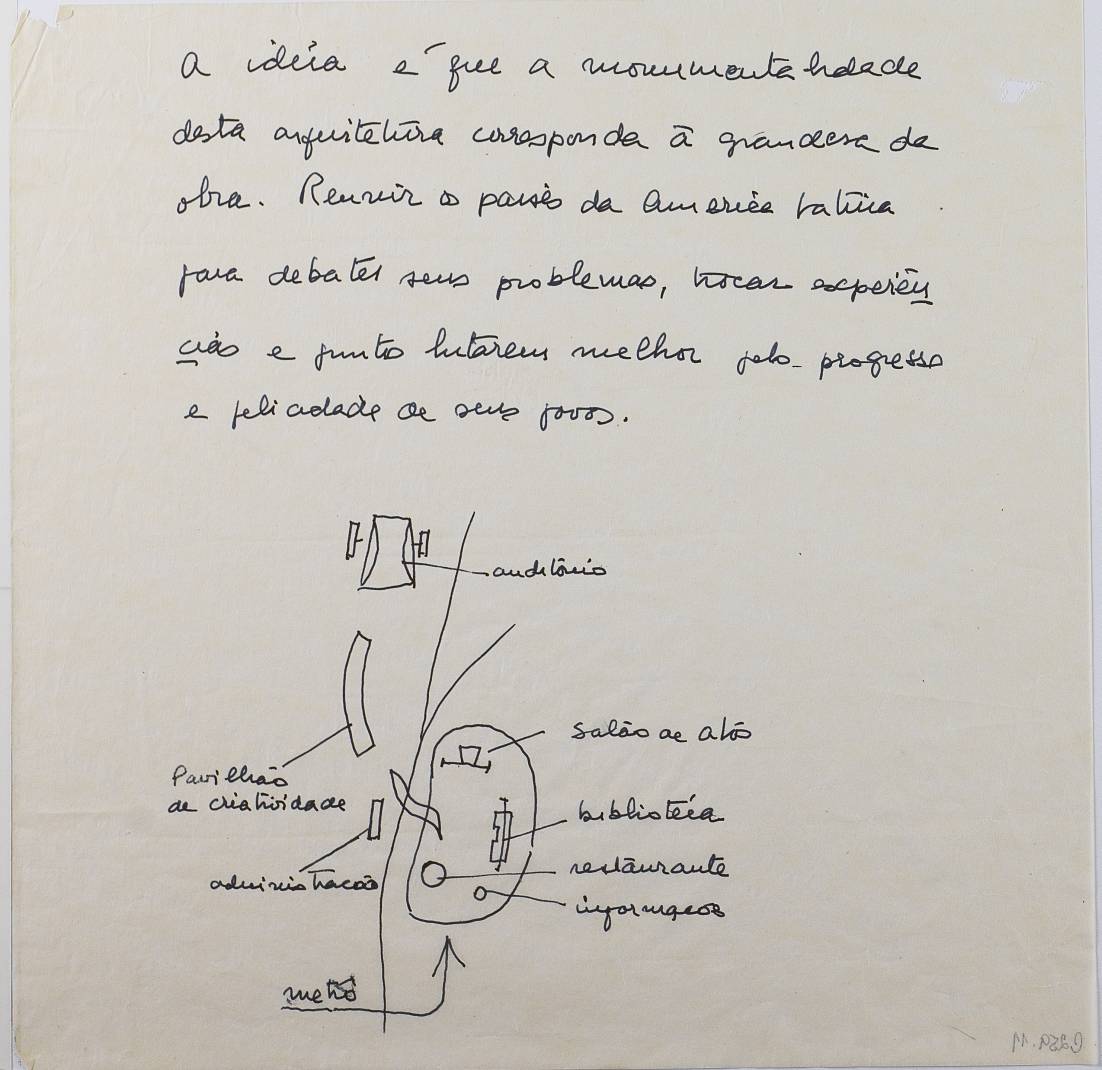 A idéia é que a monumentalidade
desta arquitetura corresponda à grandeza da
obra. Reunir os países da America Latina
para debater seus problemas, trocar experiên
cias e junto lutarem melhor pelo progresso
e felicidade de seus povos.
auditório
salão de atos
Pavilhão
de criatividade
biblioteca
restaurante
administração
informações
metrô